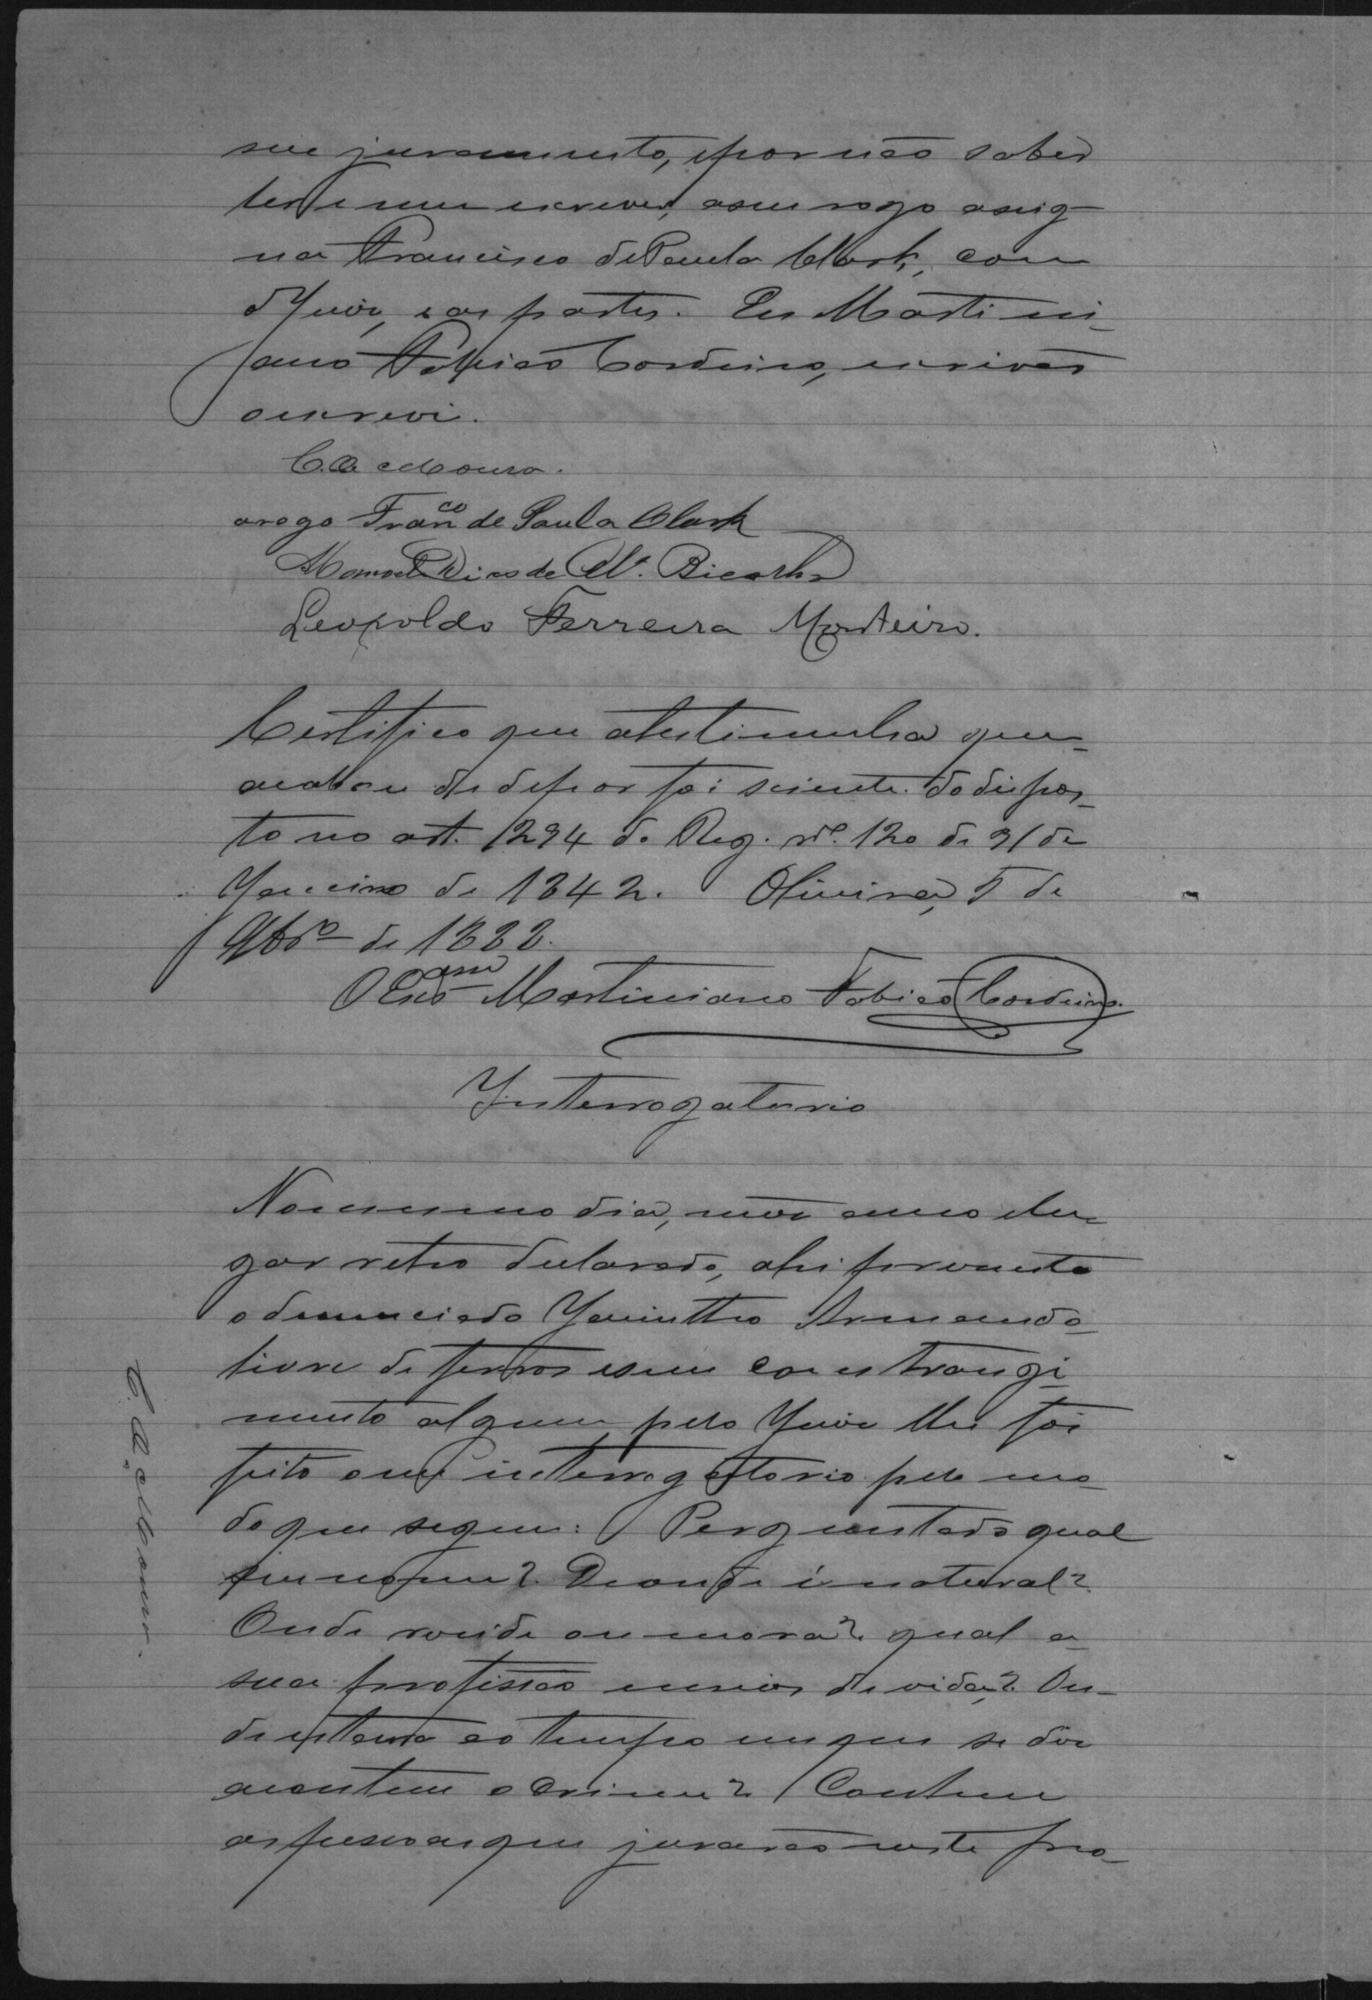 seu juramento, e por não saber
ler e nem escrever, a seu rogo assig-
na Francisco de Paula Clark, com
o Juiz, e as partes. Eu Martini-
ano Fabião Cordeiro, escrivão
o escrevi.
C. A. Moura.
arogo Fran.co de Paula Clark
Manoel Dias de Bicalho
Leopoldo Ferreira Monteiro.
Certifico que a testimunha que
acabou de depor foi sciente do dispos-
to no art. 294 do Reg. nº. 120 de 31 de
Janeiro de 1842. Oliveira, 5 de
9bro de 1888.
O Escam Martiniano Fabião Cordeiro.
Interrogatorio
No mesmo dia, mez anno e lu-
gar retro declarado, ahi presente
o denunciado Jacintho Armando
livre de ferros e sem constrangi-
mento algum, pelo Juiz lhe foi
feito o interrogatorio pelo mo-
do que segue: Perguntado qual
seu nome? De onde é natural?
Onde reside ou mora? qual a
sua profissão e meios de vida? On-
de estava ao tempo em que se diz
aconteceu o crime? Conhece
as pessoas que jurarão neste pro-
C. A. Moura.